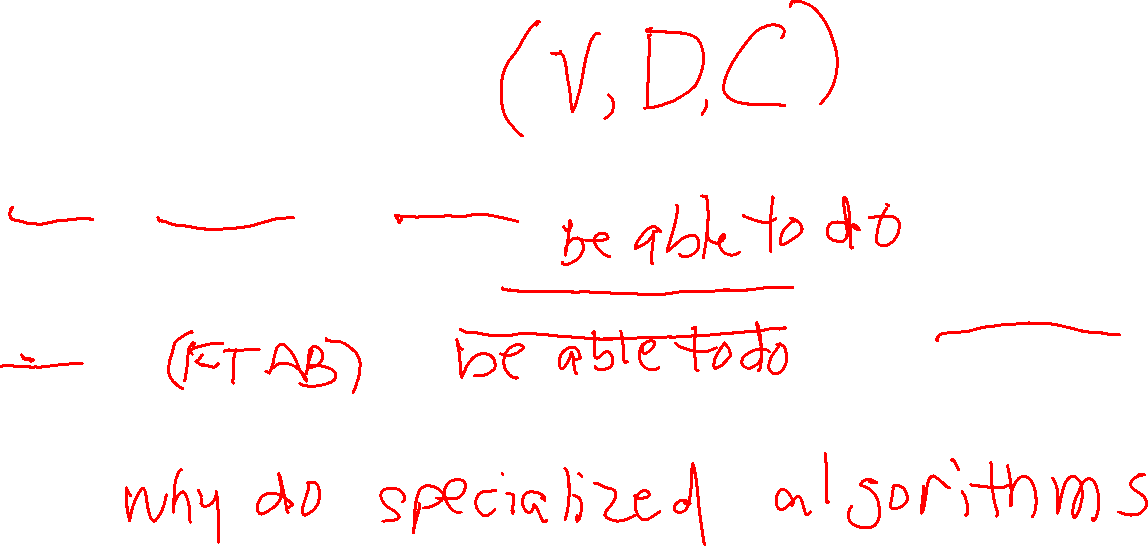 (V, D, C)
be able to do
(KTAB) be able to do
why do specialized algorithms